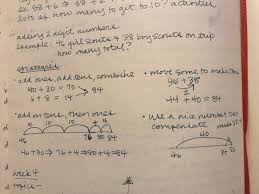 ex. 58 + ? → 58 + 2
lots of how many to get to 10? activities
- adding 2 digit numbers
example: 46 girl scouts & 38 boy scouts on trip
how many total?
strategies
• add ones, add tens, combine
40 + 30 = 70
6 + 8 = 14
84
• move some to make tens
46 + 38
2
44 + 40 = 84
• add on tens, then ones
46 76 80 84
46 + 30 → 76 + 4 → 80 + 4 = 84
• use a nice number then
compensate
40
46
week 4